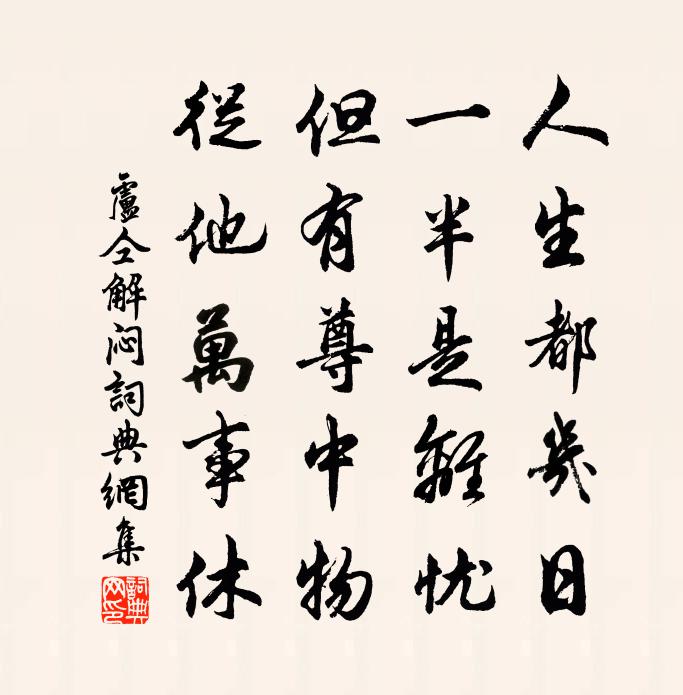 人生都幾日
一半是離忧
但有尊中物
從他萬事休
盧仝解闷詞典網集
詞典网印